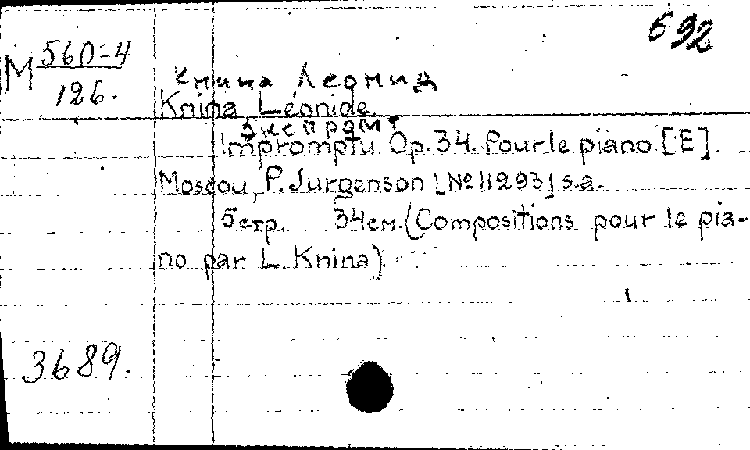 692
М 560-4
126.
Книна Леонид
Knina Léonide.
экспромт
Impromptu. Op. 34. Pour le piano. [E].
Moscou, P. Jurgenson [№ 11293] s.a.
5 стр. 34 см. (Compositions pour le pia-
no par L. Knina)
3689.